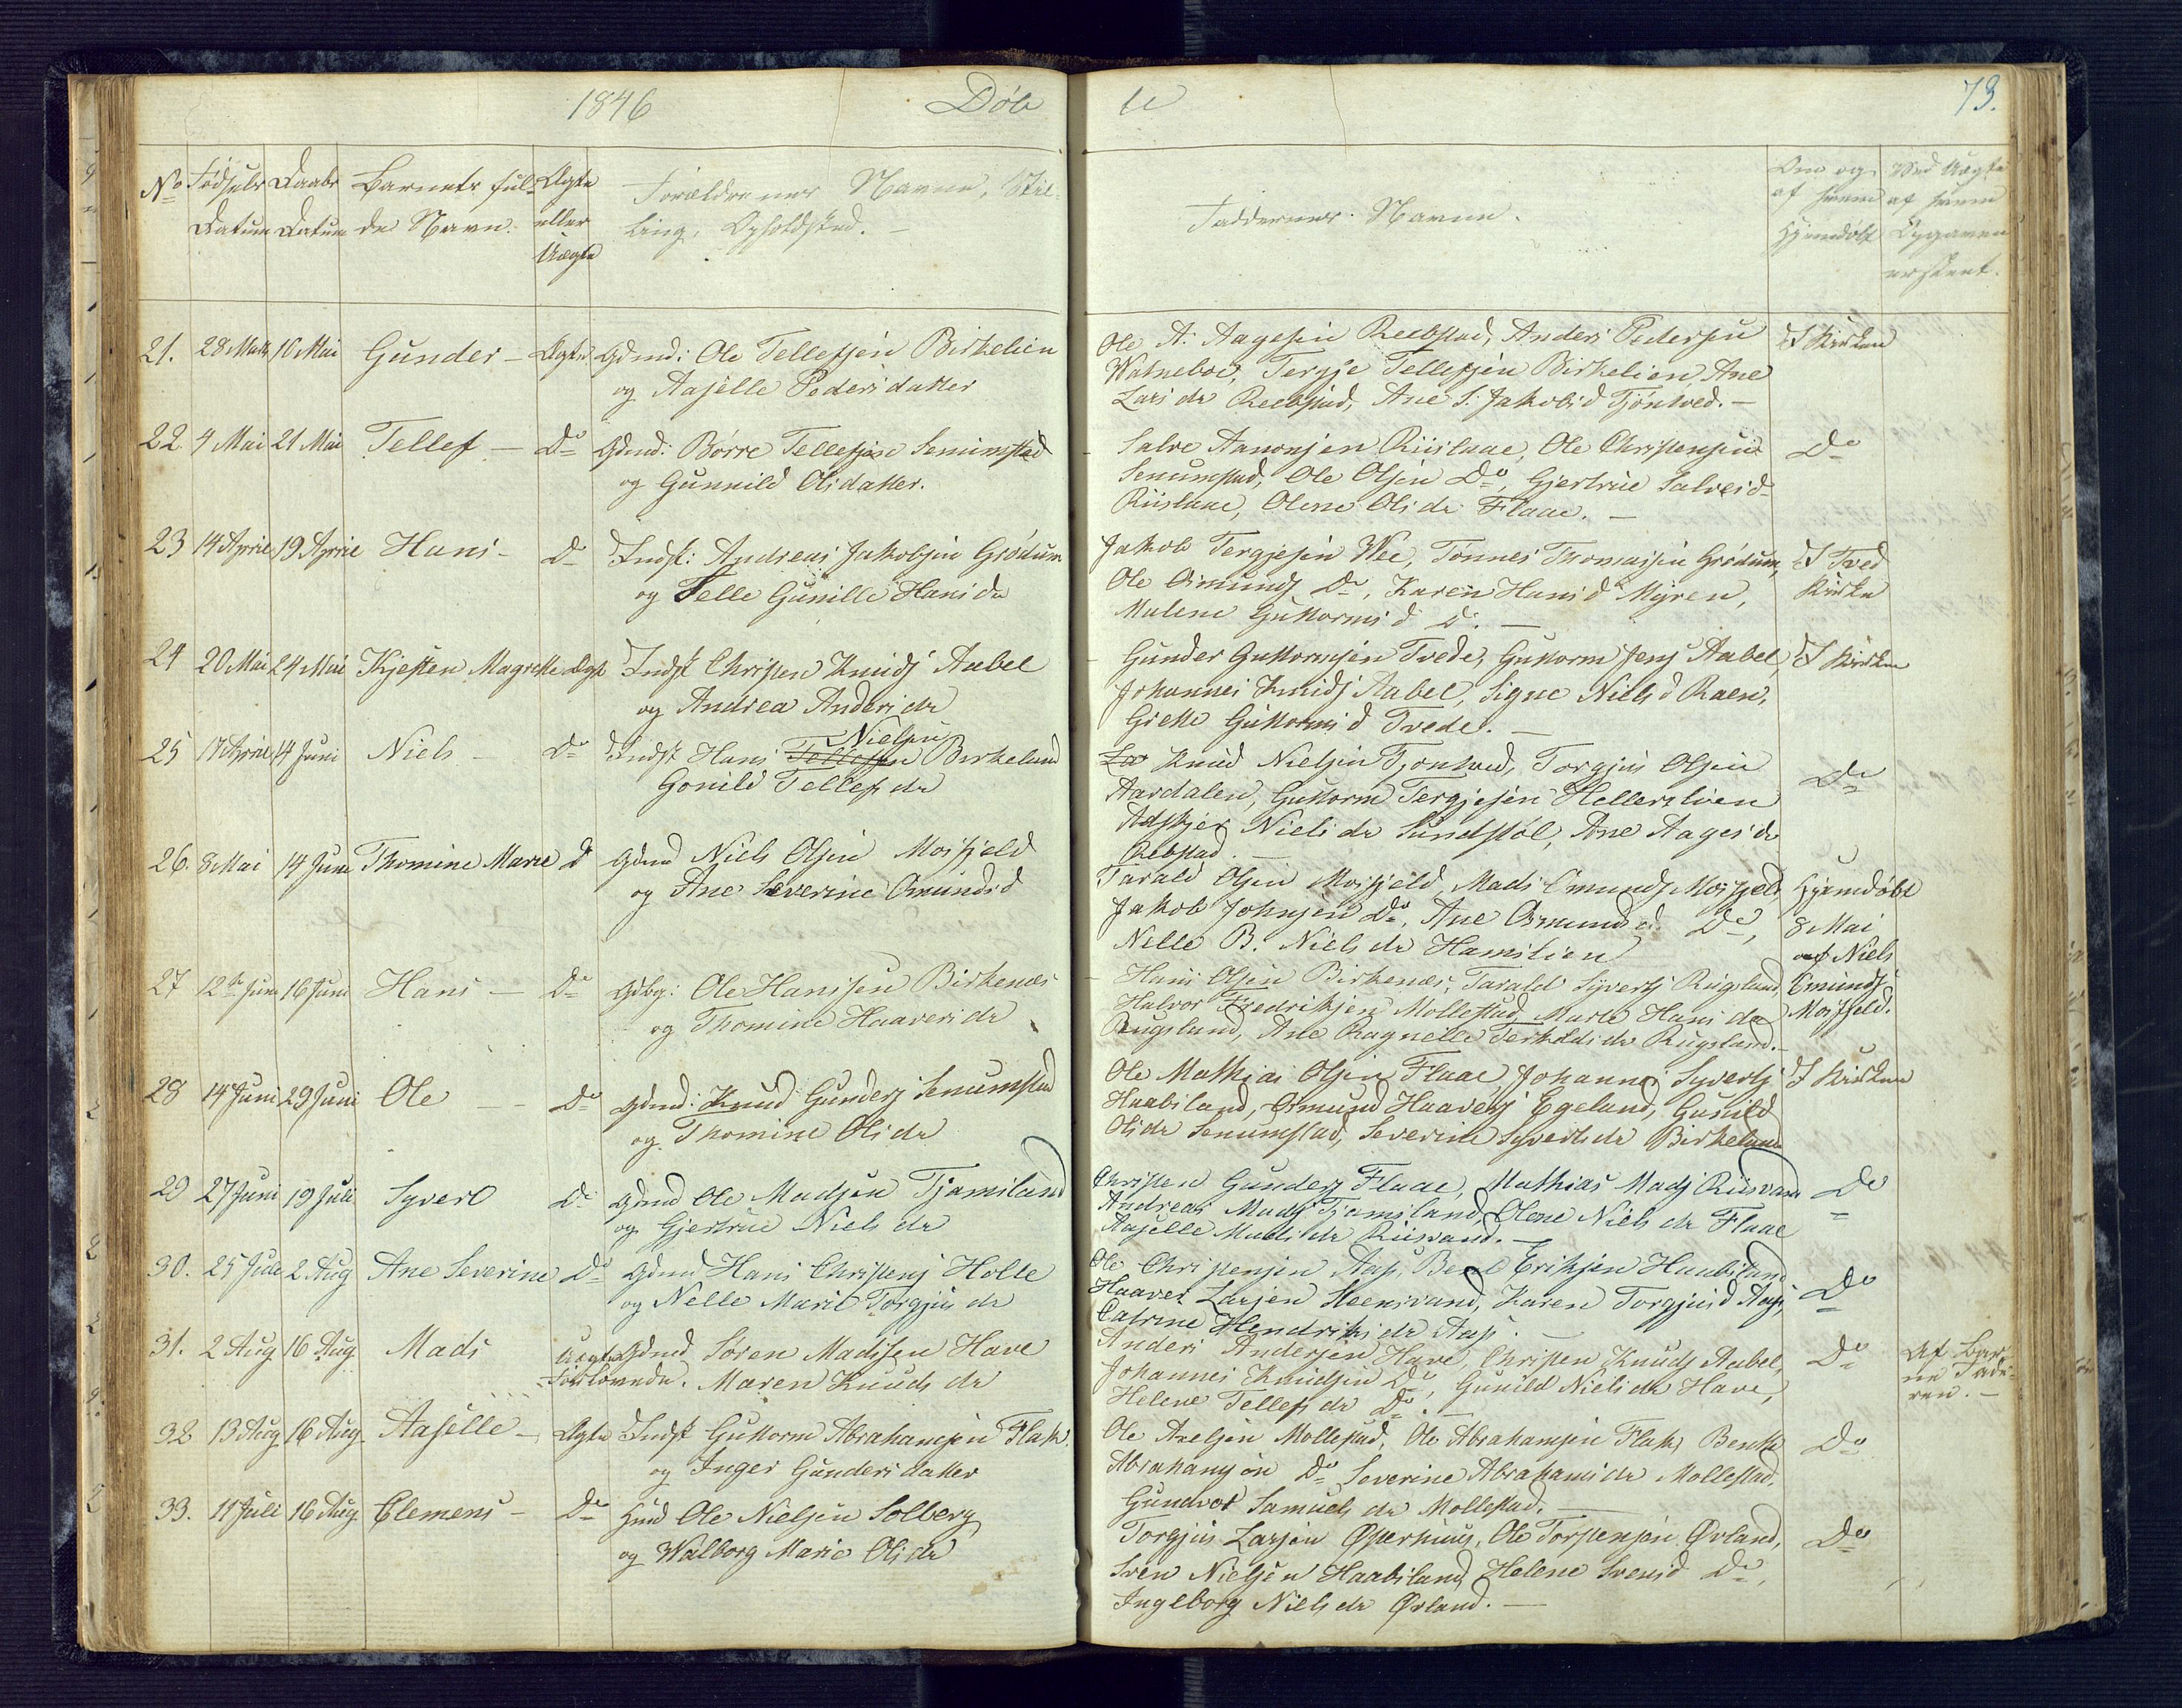 1846 Døb
te 73.
No Fødsels Daabs Barnets ful- Ægte Forældrenes Navne, Stil-
Datum Datum de Navn. eller ling, Opholdsted. –
Uægte
Faddernes Navne.
Om og Ved Uægte
af hvem af hvem
Hjemdøbt Opgaven
erskeet.
21. 28 Marts 10 Mai Gunder – Ægte Gdmd: Ole Tellefsen Birkelien
og Aaselle Pedersdatter
Ole A. Aagesen Reebstad, Anders Pedersen I Kirken
Watneboe, Tergje Tellefsen Birkelien, Ane
Lars dr Reebstad, Ane S. Jakobsd Tjöntved. –
22. 4 Mai 21 Mai Tellef – Do Gdmd: Börre Tellefsen Senumstad
og Gunnild Olsdatter.
Salve Aanonsen Riislaae, Ole Christensen Do
Senumstad, Ole Olsen Do, Gjertrue Salvesd
Riislaae, Olene Ols dr Flaae. –
23 14 April 19 April Hans – Do Indst: Andreas Jakobsen Grödum
og Telle Gunille Hans dr
Jakob Tergjesen Wee, Tönnes Thomassen Grödum, I Tved
Ole Osmunds Do, Karen Hansd Myren, Kirke
Malene Guttormsd Do. –
24 20 Mai 24 Mai Kjesten Magrette Ægte Indst Christen Knuds Aabel
og Andrea Anders dr
Gunder Guttormsen Tvede, Guttorm Jens Aabel, I Kirken
Johannes Knuds Aabel, Signe Nielsd Raen,
Grette Guttormsd Tvede. –
25 17 April 14 Juni Niels – Do Indst Hans Tellefsen Nielsen Birkeland
Gonild Tellefs dr
Knud Nielsen Tjontved, Torgjus Olsen Do
Aardalen, Guttorm Tergjesen Hellerslien
Adskjer Niels dr Sundstöl, Ane Aages dr
Rebstad. –
26. 8 Mai 14 Juni Thomine Marie Do Gdmd Niels Olsen Mosfjeld
og Ane Severine Osmundsd
Tarald Olsen Mosfjeld, Mads Osmunds Mosfjeld Hjemdøbt
Jakob Johnsen Do, Ane Osmundsd. Do, 8 Mai
Nelle B. Niels dr Hamslien af Niels
27 12te Juni 16 Juni Hans – Do Gdbg: Ole Hanssen Birkenæs
og Thomine Haavers dr
Hans Olsen Birkenæs, Tarald Syverts Rugsland, Osmunds
Halvor Fredriksen Mollestad, Marte Hans dr Mosfjeld.
Rugsland, Ane Ragnelle Terkilds dr Rugsland. –
28 14 Juni 29 Juni Ole – Do Gdmd: Knud Gunders Senumstad
og Thomine Ols dr
Ole Mathias Olsen Flaae, Johannes Syverts I Kirken
Haabsland, Osmund Haavers Egeland, Gunild
Ols dr Senumstad, Severine Syverts dr Birkeland
29 27 Juni 19 Juli Syvert Do Gdmd Ole Madsen Tjamsland
og Gjertrue Niels dr
Christen Gunders Flaae, Mathias Mads Riisvand Do
Andreas Mads Tjamsland, Olene Niels dr Flaae
Aaselle Mads dr Riisvand. –
30. 25 Juli 2 Aug Ane Severine Do Gdmd Hans Christens Holte
og Nelle Marie Torgjus dr
Ole Christensen Aas, Bent Eriksen Haabsland Do
Haaver Larsen Steensvand, Karen Torgjusd Aas,
Catrine Hendriks dr Aas. –
31. 2 Aug 16 Aug Mads Uægte Gdmd Søren Madssen Have
Forlovede. Maren Knuds dr
Anders Andersen Have, Christen Knuds Aabel, Do Af Bar-
Johannes Knudsen Do, Gunild Niels dr Have, ne Fade-
Helene Tellefs dr Do. ren. –
32 13 Aug 16 Aug Aaselle – Ægte Indst Guttorm Abrahamsen Flak
og Inger Gundersdatter
Ole Axelsen Mollestad, Ole Abrahamsen Flak, Bent Do
Abrahamsön Do Severine Abrahams dr Mollestad,
Gundvor Samuels dr Mollestad. –
33. 11 Juli 16 Aug Clemens – Do Hmd Ole Nielsen Solberg
og Walborg Marie Ols dr
Torgjus Larsen Østerhuus, Ole Torstensen Ørland, Do
Sven Nielsen Haabsland, Helene Svensd Do,
Ingeborg Niels dr Ørland. –